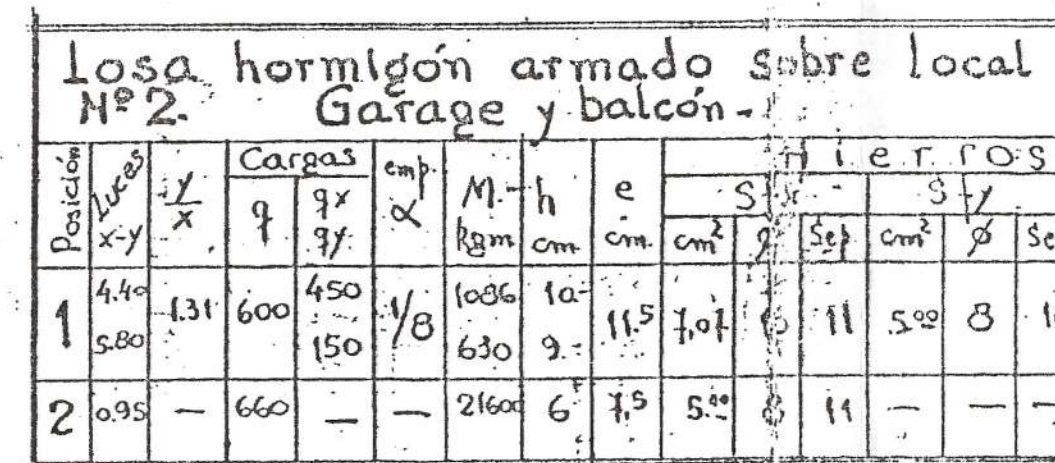 Losa hormigón armado sobre local
Nº 2. Garage y balcón.-
Posición Luces x-y y/x Cargas q qx qy emp. α M.- kgm h cm e cm. Hierros
Sfx Sfy
cm² Sep cm² ø
1 4.40 5.80 1.31 600 450 150 1/8 1086 630 10.- 9.- 11.5 7,07 11 5.00 8
2 0.95 — 660 — — 21600 6 7,5 11 — — —